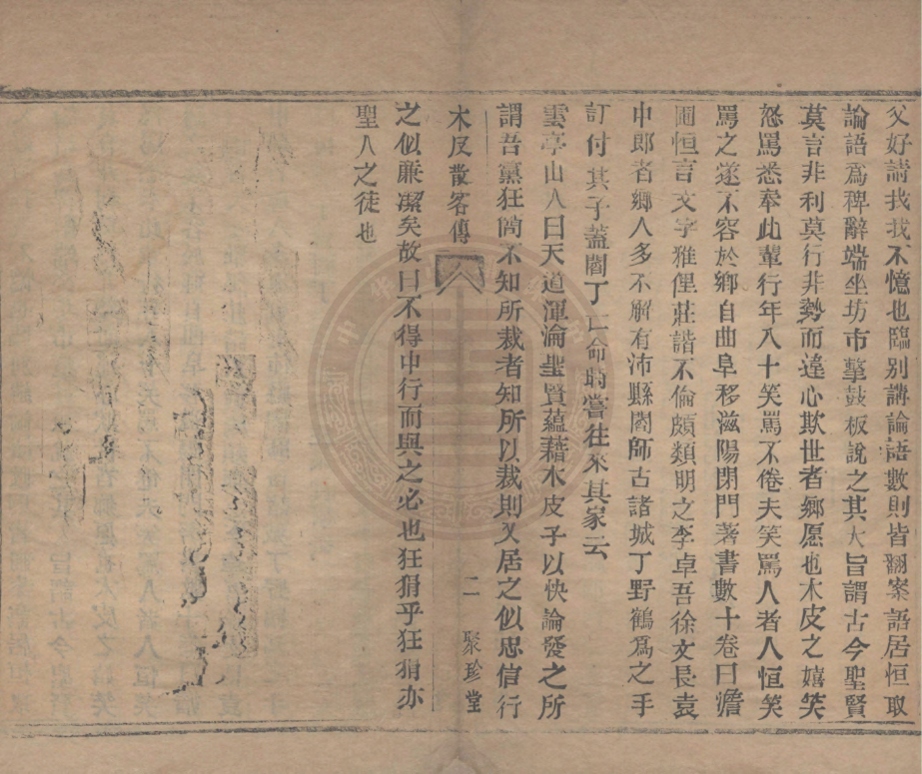 父好請我我不憶也臨别講論語數則皆翻案語居恒取
論語爲稗辭端坐坊市擊鼓板說之其大旨謂古今聖賢
莫言非利莫行非勢而違心欺世者鄉愿也木皮之嬉笑
怒罵悉奉此輩行年八十笑罵不倦夫笑罵人者人恒笑
罵之遂不容於鄉自曲阜移滋陽閉門著書數十卷曰澹
圃恒言文字雅俚莊諧不倫頗類明之李卓吾徐文長袁
中郎者鄉人多不解有沛縣閻師古諸城丁野鶴爲之手
訂付其子蓋閻丁亡命時嘗往來其家云
雲亭山人曰天道渾淪聖賢蘊藉木皮子以快論發之所
謂吾黨狂簡不知所裁者知所以裁則又居之似忠信行
木皮散客傳 二 聚珍堂
之似廉潔矣故曰不得中行而與之必也狂狷乎狂狷亦
聖人之徒也